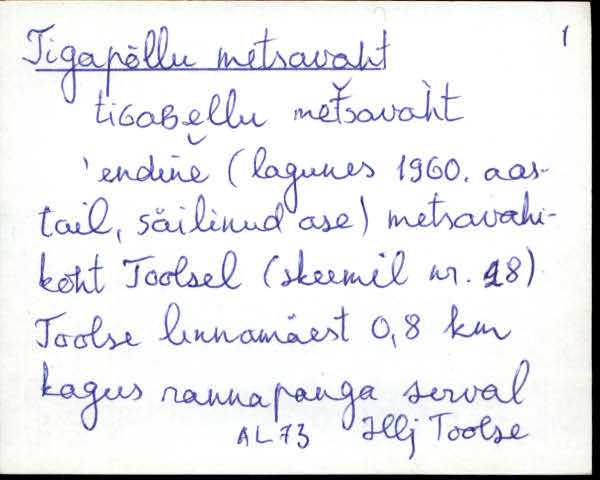 1
Tigapõllu metsavaht
tiGaBe̮llu metšavaht
'endine (lagunes 1960. aas-
tail, säilinud ase) metsavahi-
koht Toolsel (skeemil nr. 28)
Toolse linnamäest 0,8 km
kagus rannapanga serval
AL 73 Hlj Toolse